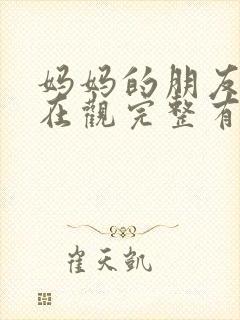 妈妈的朋友
在觀完整有
崔天凱